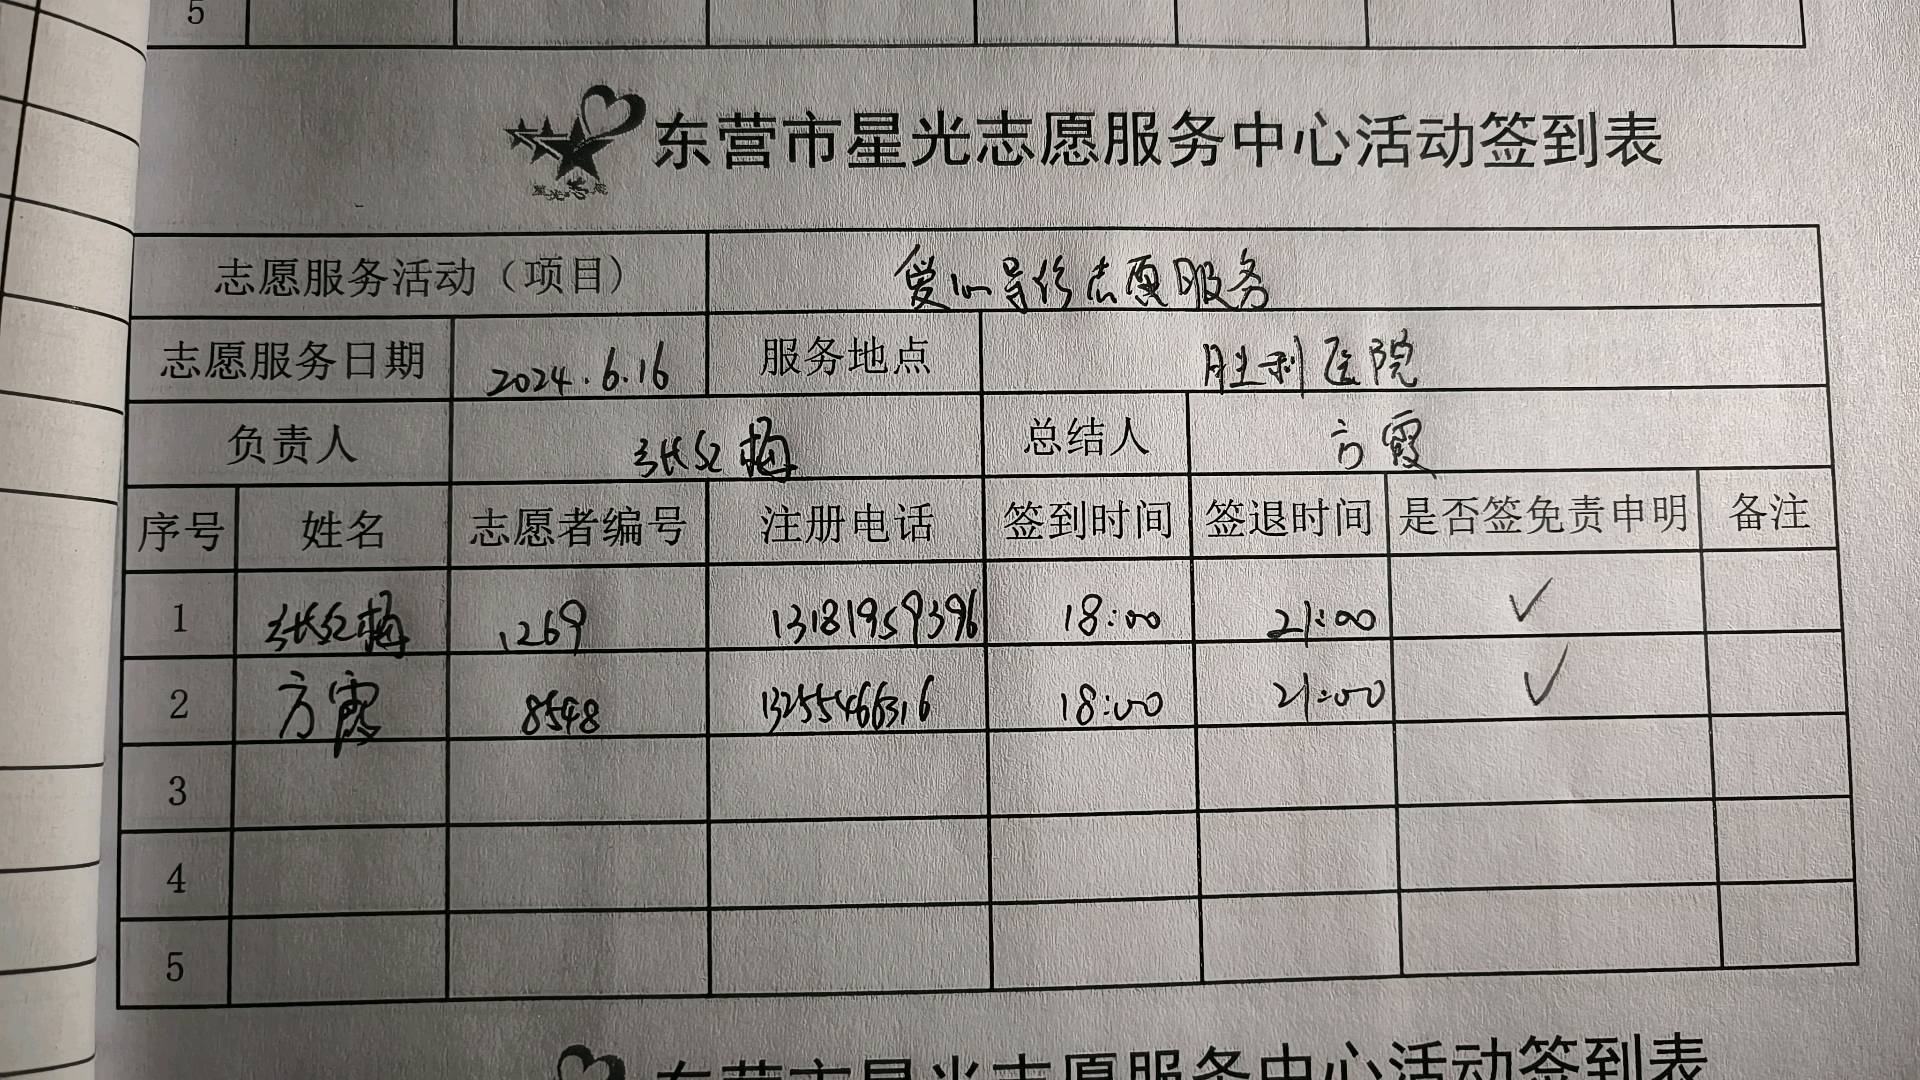 5
东营市星光志愿服务中心活动签到表
星光志愿
志愿服务活动（项目） 爱心导诊志愿服务
志愿服务日期 2024.6.16 服务地点 胜利医院
负责人 张红梅 总结人 方霞
序号 姓名 志愿者编号 注册电话 签到时间 签退时间 是否签免责申明 备注
1 张红梅 1269 13181959396 18:00 21:00 ✓
2 方霞 8548 13255466316 18:00 21:00 ✓
3
4
5
东营市星光志愿服务中心活动签到表